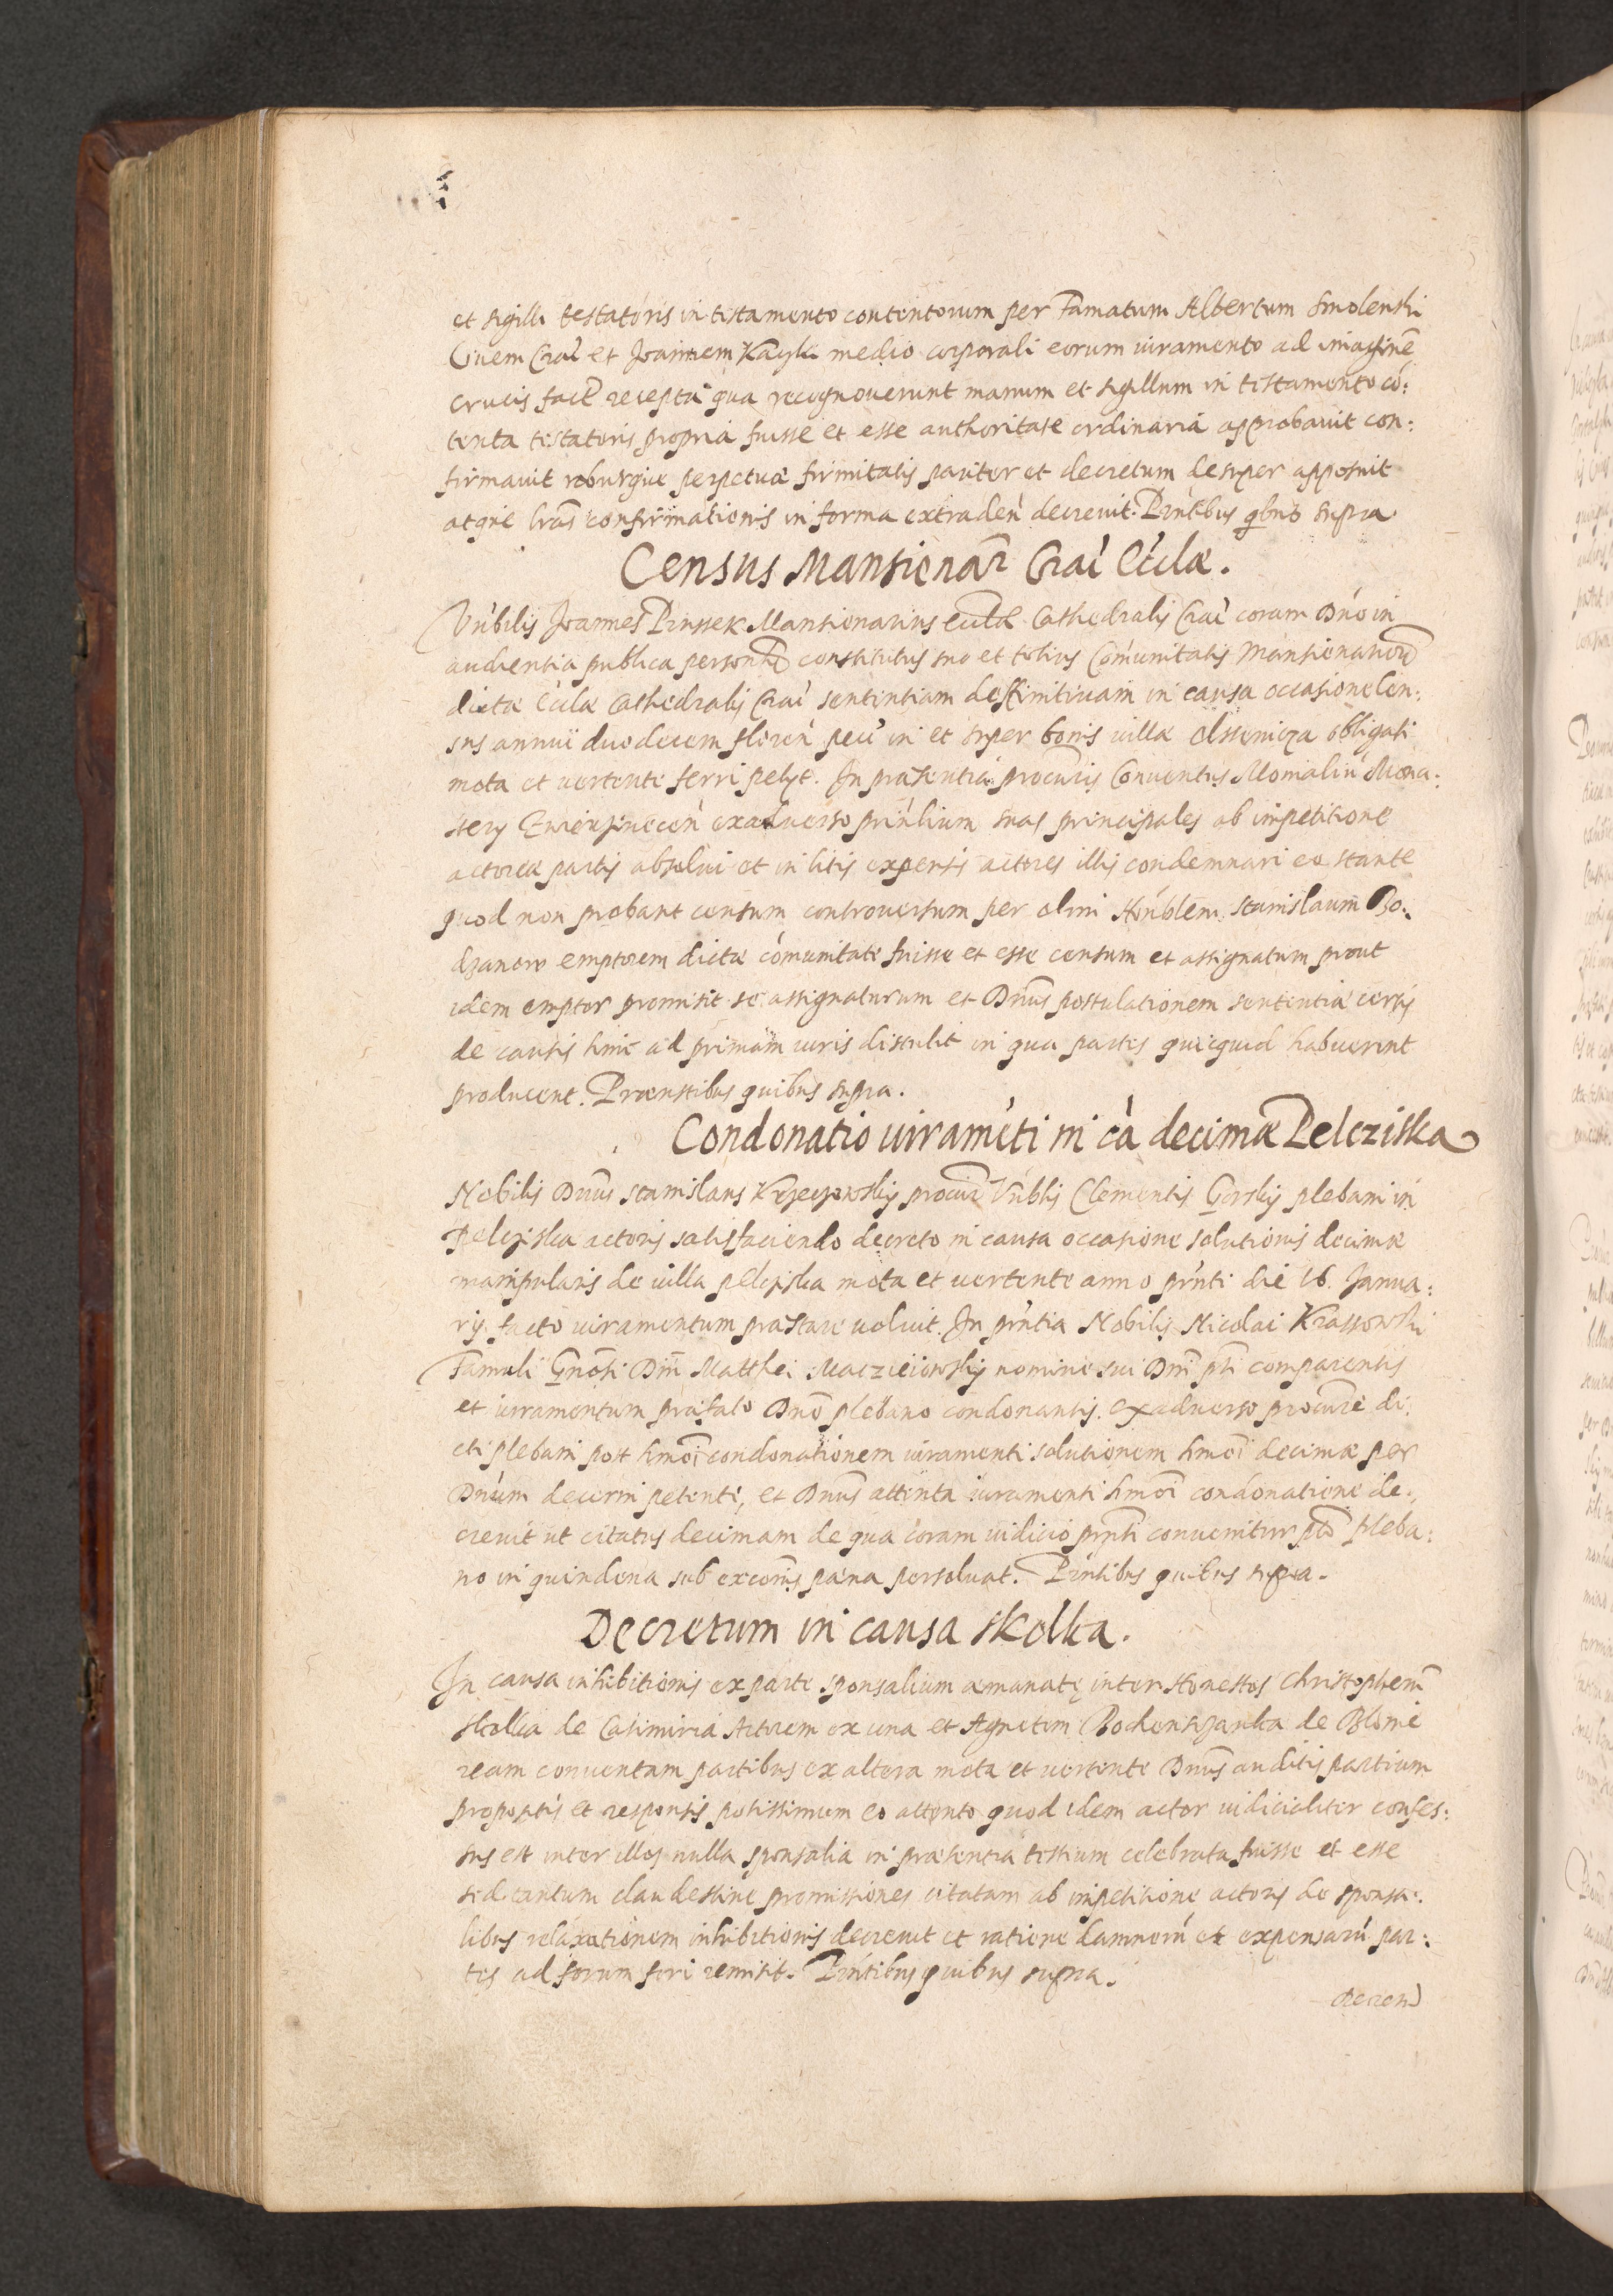 et sigilli testatoris in testamento contentorum per Famatum Albertum Smolenski
Ciuem Crac̀ et Joannem Kaczki medio corporali eorum iuramento ad imaginē
crucis fact̄ recepta qua recognouerunt manum et sigillum in testamento cō:
tenta testatoris propria fuisse et esse authoritate ordinaria approbauit con:
firmauit roburque perpetuæ firmitatis pariter et decretum desuper apposuit
atque lr̄as confirmationis in forma extraden̄ decreuit. Prn̄tibus qbus supra
Census Mansionar̄ Crac̀ Eccl̀æ.
Vn̄bilis Joannes Prussek Mansionarius Eccl̄æ Cathedralis Crac̀ coram Dn̄o in
audientia publica personlr̄ constitutus suo et totius Com̄unitatis Mansionariorū
dictæ Eccl̀æ Cathedralis Crac̀ sententiam deffinitiuam in causa occasione Cen:
sus annui duodecem floren̄ pecc̄ in et super bonis villæ Olssenicza obligati
mota et vertente ferri petyt. In præsentia procuris Conuentus Monialiū Mona:
stery Zwierzinecen̄ ex aduerso prin̄lium suas principales ab impetitione
actoreæ partis absolui et in litis expensis actores illis condemnari eo stante
quod non probant censum controuersum per olim Hon̄blem Stanislaum Bo:
dzanow emptorem dictæ com̄unitate fuisse et esse censum et assignatum prout
idem emptor promisit se assignaturum et Dn̄us postulationem sententiæ certis
de causis hinc ad primam iuris distulit in qua partes quicquid habuerint
producent. Præn̄stibus quibus supra.
Condonatio iuramēti in cā decimæ Pelcziska
Nobilis Dn̄us Stanislaus Krzeczowsky procur̄ Vn̄blis Clementis Gorsky plebani in
Pelcziska actoris satisfaciendo decreto in causa occasione solutionis decimæ
manipularis de villa Pelcziska mota et vertente anno prn̄ti die 16. Janua:
ry facto iuramentum præstare voluit. In prn̄tia Nobilis Nicolai Krassowski
Famuli Gn̄osi Dn̄i Matthei Maczieiowsky nomine sui Dn̄i pti comparentis
et iuramentum præfato Dn̄o plebano condonantis. Ex aduerso procur̄e di:
cti plebani post hmōi condonationem iuramenti solutionem hmōi decimæ per
Dn̄um decerni petente, et Dn̄us attenta iuramenti hmōi condonatione de:
creuit ut citatus decimam de qua coram iudicio prn̄ti conuenitur pto pleba:
no in quindena sub excom̄is pæna persoluat. Prn̄tibus quibus supra.
Decretum in causa Skolka.
In causa inhibitionis ex parte sponsalium æmanatę inter Honestos Christopherū
Skolka de Casimiria Actorem ex una et Agnetem Bochenszanka de Blonie
ream conuentam partibus ex altera mota et vertente Dn̄us auditis partium
propositis et responsis potissimum eo attento quod idem actor iudicialiter confes:
sus est inter illos nulla sponsalia in præsentia testium celebrata fuisse et esse
sed tantum clandestine promissiones citatam ab impetitione actoris de sponsa:
libus relaxationem inhibitionis decreuit et ratione damnorū et expensarū par:
tes ad forum fori remisit. Prn̄tibus quibus supra.